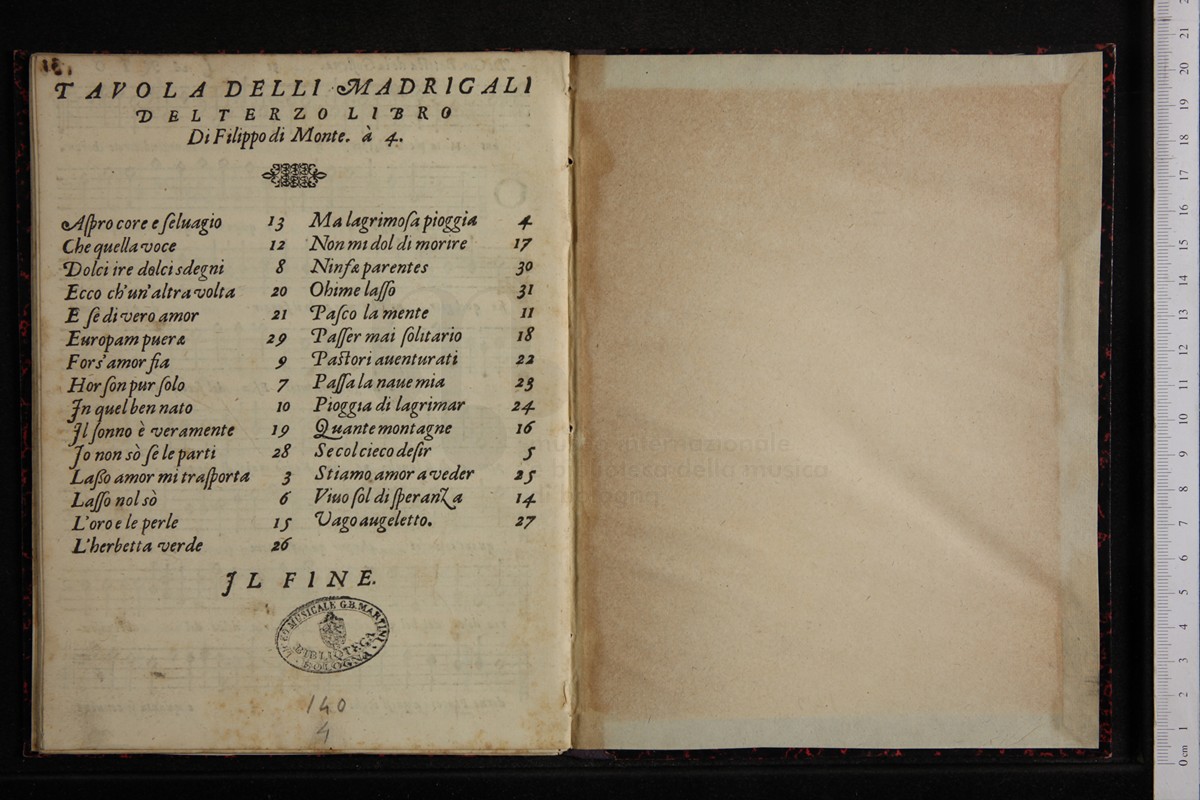 TAVOLA DELLI MADRIGALI
DEL TERZO LIBRO
Di Filippo di Monte. à 4.
Aſpro core e ſeluagio 13
Che quella voce 12
Dolci ire dolci sdegni 8
Ecco ch'un'altra volta 20
E ſè di vero amor 21
Europam pueræ 29
Fors'amor fia 9
Hor ſon pur ſolo 7
In quel ben nato 10
Il ſonno è veramente 19
Io non sò ſe le parti 28
Laßo amor mi traſporta 3
Laſſo nol sò 6
L'oro e le perle 15
L'herbetta verde 26
Ma lagrimoſa pioggia 4
Non mi dol di morire 17
Ninfæ parentes 30
Ohime laſſo 31
Paſco la mente 11
Paſſer mai ſolitario 18
Paſtori auenturati 22
Paſſa la naue mia 23
Pioggia di lagrimar 24
Quante montagne 16
Se col cieco deſir 5
Stiamo amor a veder 25
Viuo ſol di ſperanza 14
Vago augeletto. 27
IL FINE.
LICEO MUSICALE G.B. MARTINI
BIBLIOTECA
BOLOGNA
140
4
museo internazionale
e biblioteca della musica
di bologna
0 cm 1 2 3 4 5 6 7 8 9 10 11 12 13 14 15 16 17 18 19 20 21